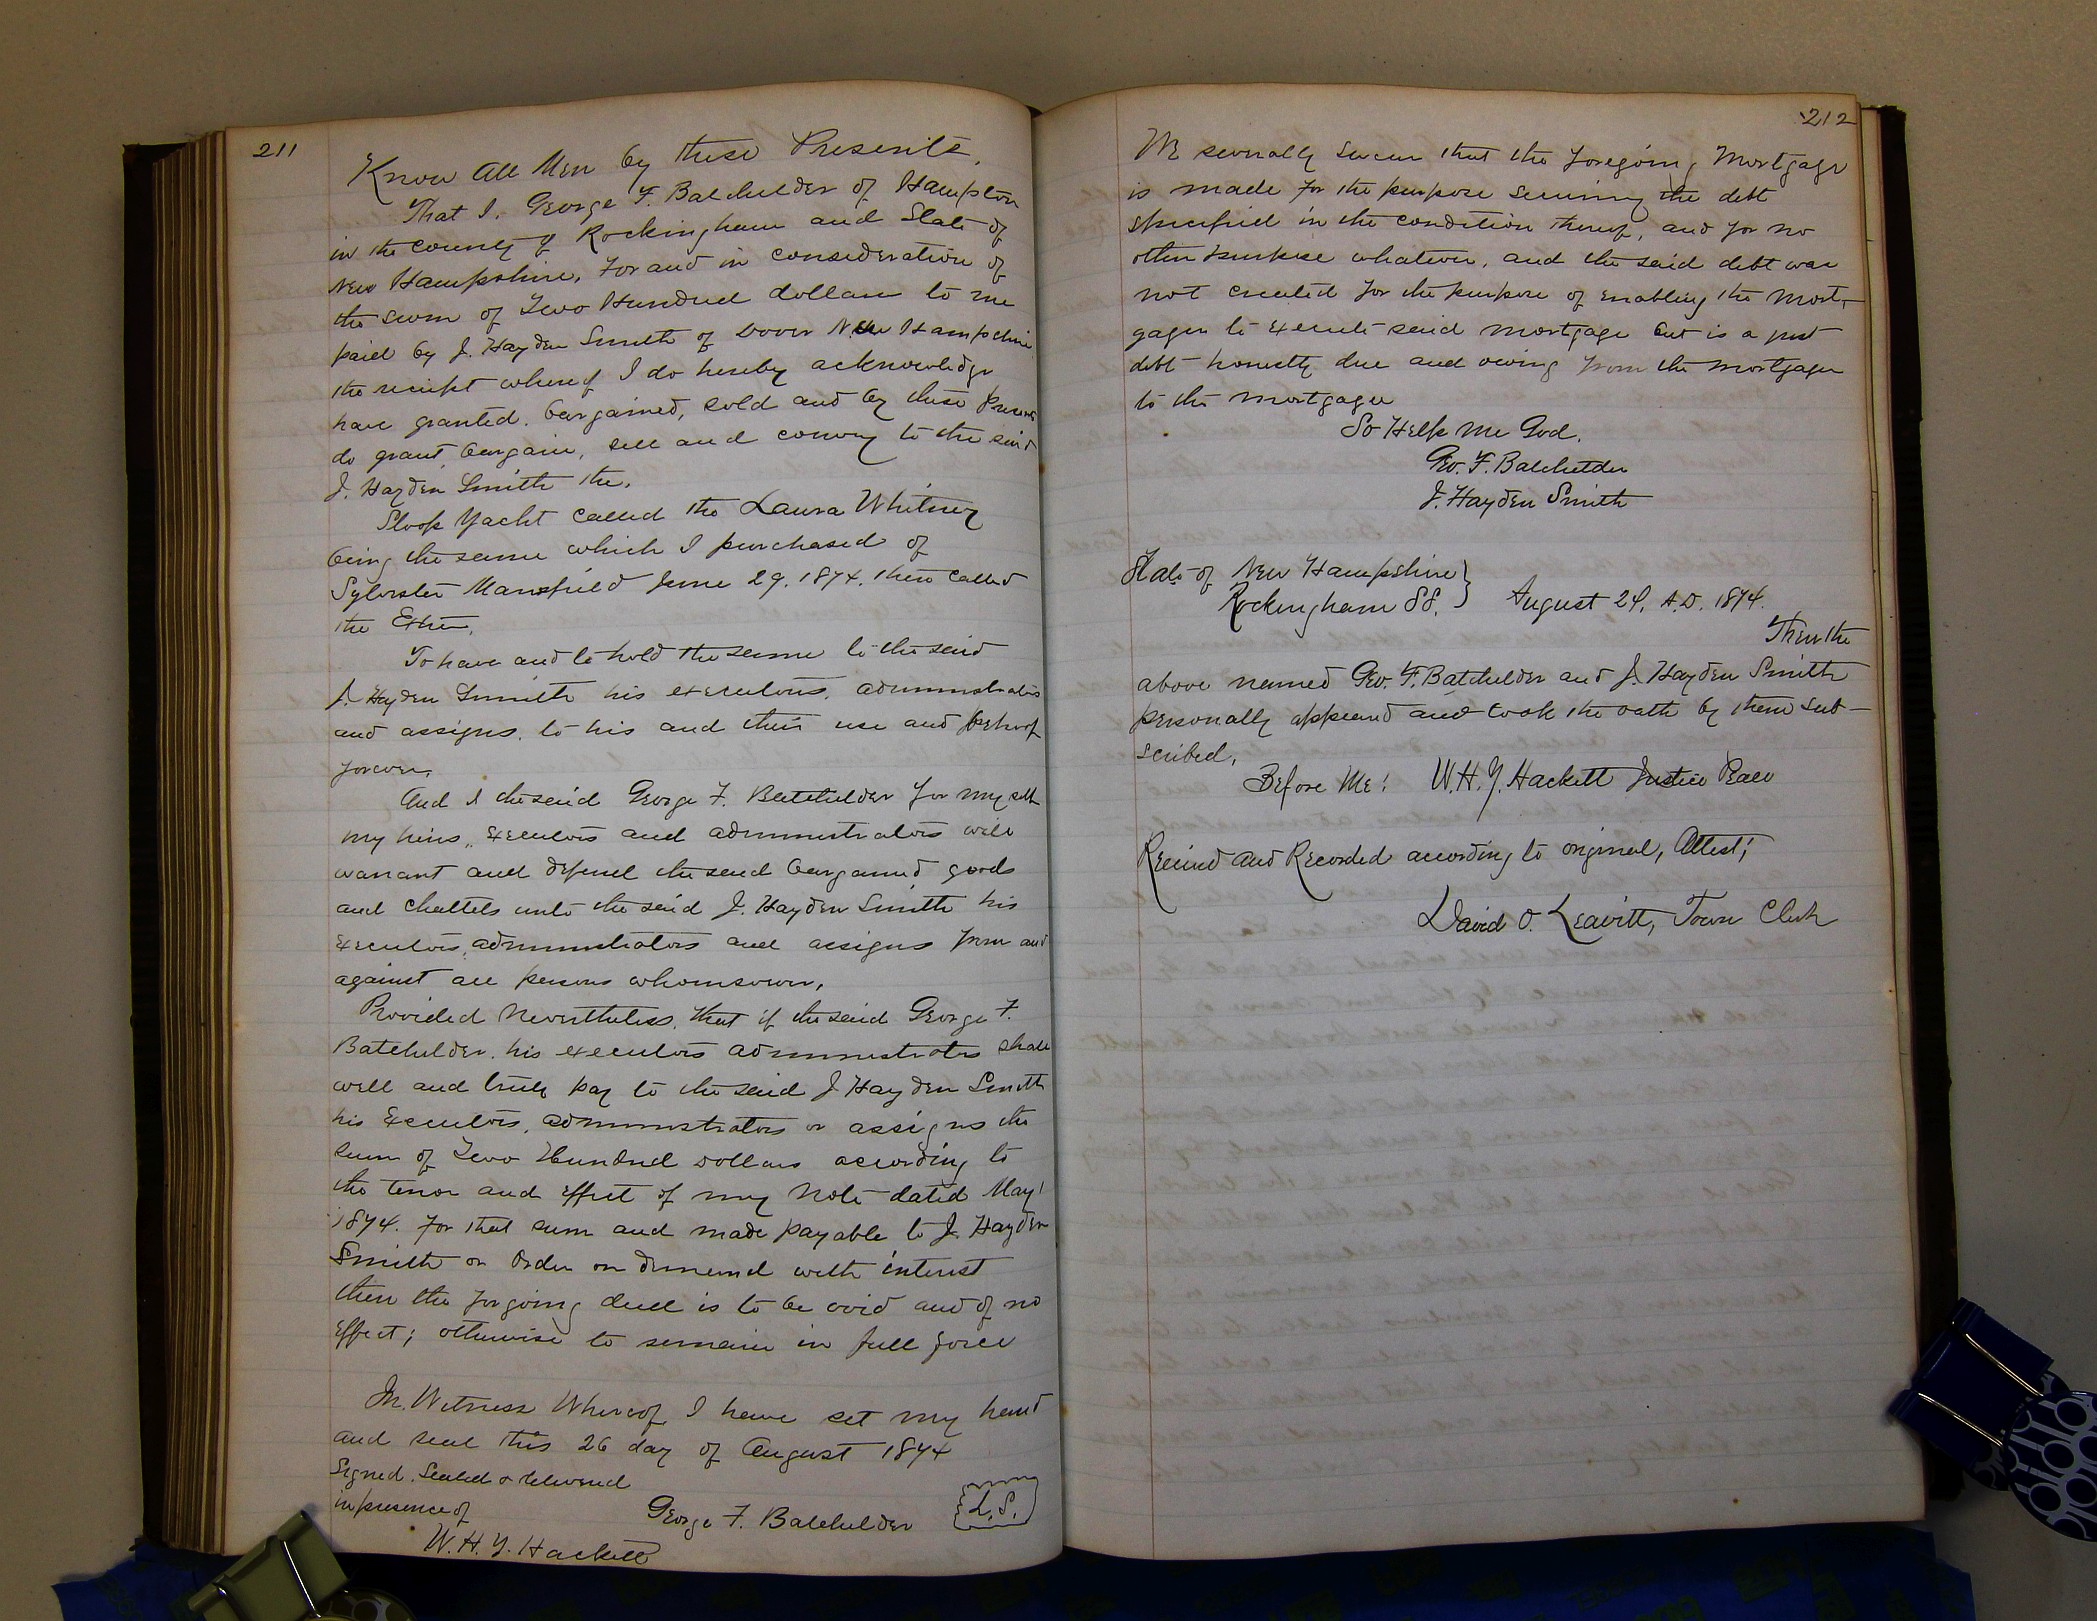 211
Know All Men by these Presents,
That I, George F. Batchelder of Hampton
in the County of Rockingham and State of
New Hampshire, For and in consideration of
the sum of Two Hundred dollars to me
paid by J. Hayden Smith of Dover New Hampshire
the receipt whereof I do hereby acknowledge
have granted, bargained, sold and by these presents
do grant, bargain, sell and convey to the said
J. Hayden Smith the,
Sloop Yacht called the Laura Whitney
being the same which I purchased of
Sylvester Mansfield June 29, 1874, then called
the
To have and to hold the same to the said
J. Hayden Smith his executors, administrators
and assigns, to his and their use and behoof
forever,
And I the said George F. Batchelder for myself
my heirs, executors and administrators will
warrant and defend the said bargained goods
and chattels unto the said J. Hayden Smith his
executors, administrators and assigns from and
against all persons whomsoever,
Provided Nevertheless, that if the said George F.
Batchelder, his executors administrators shall
well and truly pay to the said J Hayden Smith
his Executors, administrators or assigns the
sum of Two Hundred Dollars according to
the tenor and effect of my Note dated May 1
1874. For that sum and made payable to J. Hayden
Smith or Order on demand with interest
then the forgoing deed is to be void and of no
Effect; otherwise to remain in full force
In Witness Whereof, I have set my hand
and seal this 26 day of August 1874
Signed, Sealed & delivered
in presence of
George F. Batchelder L.S.
W. H. Y. Hackett
212
We severally swear that the foregoing Mortgage
is made for the purpose securing the debt
specified in the condition thereof, and for no
other purpose whatever, and the said debt was
not created for the purpose of enabling the Mort-
gager to execute said mortgage but is a just
debt honestly due and owing from the mortgager
to the mortgagee
So Help Me God.
Geo. F. Batchelder
J. Hayden Smith
State of New Hampshire }
Rockingham SS. } August 24, A.D. 1874.
Then the
above named Geo. F. Batchelder and J. Hayden Smith
personally appeared and took the oath by them sub-
scribed,
Before Me: W. H. Y. Hackett Justice Peace
Received and Recorded according to original, Attest;
David O. Leavitt, Town Clerk